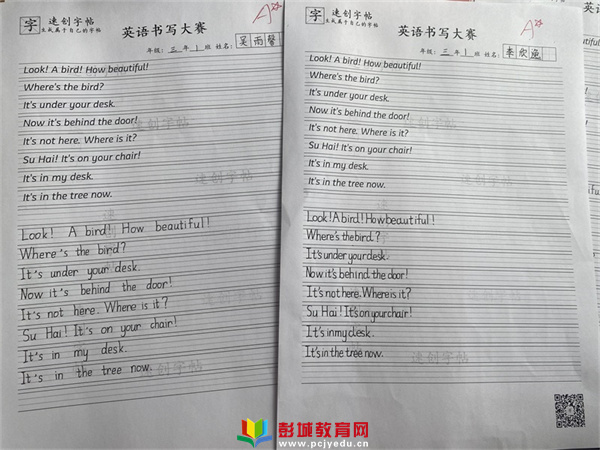 字 速创字帖
生成属于自己的字帖
A
英语书写大赛
年级：三 年 1 班 姓名：吴雨馨
Look! A bird! How beautiful!
Where's the bird?
It's under your desk.
Now it's behind the door!
It's not here. Where is it?
Su Hai! It's on your chair!
It's in my desk.
It's in the tree now.
Look! A bird! How beautiful!
Where's the bird?
It's under your desk.
Now it's behind the door!
It's not here. Where is it?
Su Hai! It's on your chair!
It's in my desk.
It's in the tree now.
速创字帖
字 速创字帖
生成属于自己的字帖
A
英语书写大赛
年级：三 年 1 班 姓名：李欣
Look! A bird! How beautiful!
Where's the bird?
It's under your desk.
Now it's behind the door!
It's not here. Where is it?
Su Hai! It's on your chair!
It's in my desk.
It's in the tree now.
Look! A bird! How beautiful!
Where's the bird?
It's under your desk.
Now it's behind the door!
It's not here. Where is it?
Su Hai! It's on your chair!
It's in my desk.
It's in the tree now.
速创字帖
彭城教育网
www.pcjyedu.cn